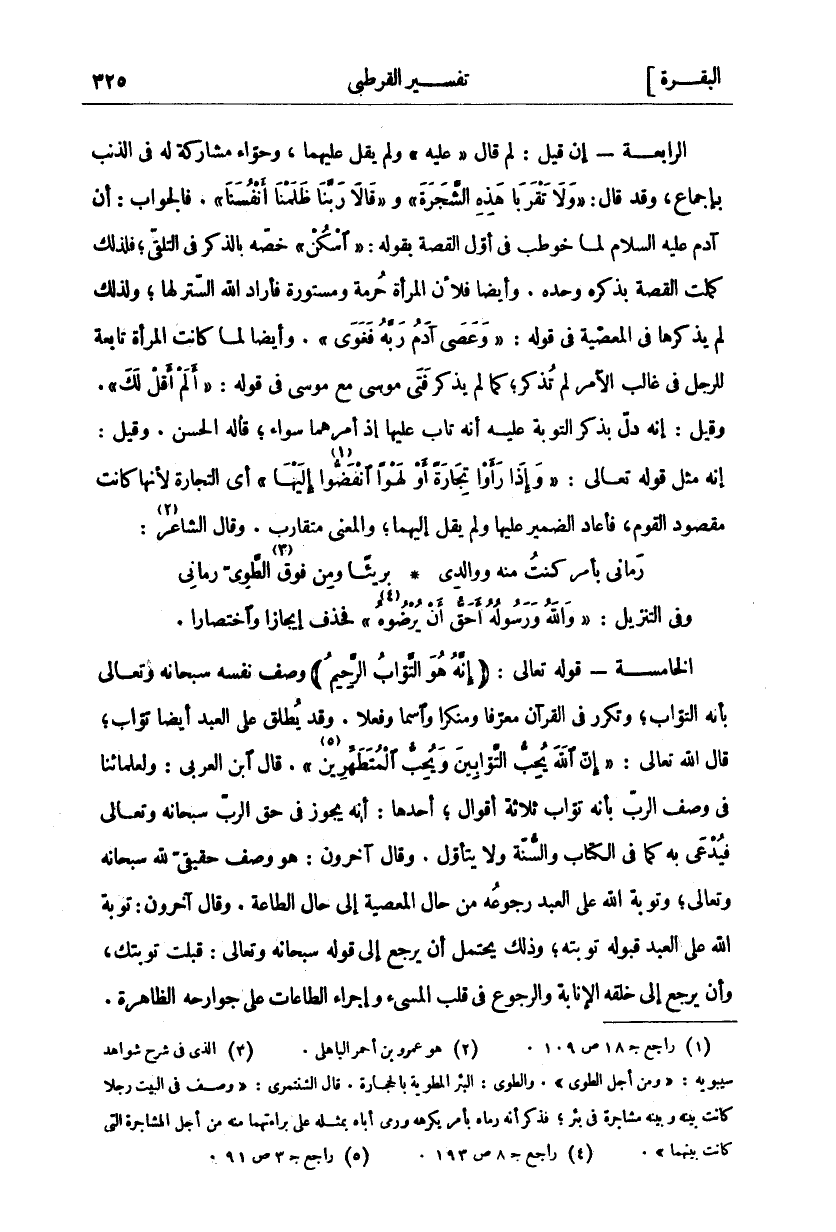 البقـــرة ] تفســـير القرطبى ٣٢٥
الرابعـــة — إن قيل : لم قال « عليه » ولم يقل عليهما ، وحوّاء مشاركة له فى الذنب
بإجماع ، وقد قال : « وَلَا تَقْرَبَا هَذِهِ الشَّجَرَةَ » و « قَالَا رَبَّنَا ظَلَمْنَا أَنْفُسَنَا » . فالجواب : أن
آدم عليه السلام لمــا خوطب فى أوّل القصة بقوله : « ٱسْكُنْ » خصّه بالذكر فى التلقّى ؛ فلذلك
كملت القصة بذكره وحده . وأيضا فلأن المرأة حُرمة ومستورة فأراد الله السّتر لها ؛ ولذلك
لم يذكرها فى المعصية فى قوله : « وَعَصَى آدَمُ رَبَّهُ فَغَوَى » . وأيضا لمــا كانت المرأة تابعة
للرجل فى غالب الأمر لم تُذكر ؛ كما لم يذكر فَتَى موسى مع موسى فى قوله : « أَلَمْ أَقُلْ لَكَ » .
وقيل : إنه دلّ بذكر التوبة عليــه أنه تاب عليها إذ أمرهما سواء ؛ قاله الحسن . وقيل :
إنه مثل قوله تعــالى : « وَإِذَا رَأَوْا تِجَارَةً أَوْ لَهْوًا ٱنْفَضُّوا إِلَيْهَا (١) » أى التجارة لأنها كانت
مقصود القوم ، فأعاد الضمير عليها ولم يقل إليهما ؛ والمعنى متقارب . وقال الشاعر (٢) :
رَمانى بأمر كنتُ منه ووالدِى * بريئــا ومِن فوق الطَّوِىّ رمانِى (٣)
وفى التنزيل : « وَاللَّهُ وَرَسُولُهُ أَحَقُّ أَنْ يُرْضُوهُ (٤) » فحذف إيجازا وٱختصارا .
الخامســـة — قوله تعالى : ﴿ إِنَّهُ هُوَ التَّوَّابُ الرَّحِيمُ ﴾ وصف نفسه سبحانه وتعــالى
بأنه التوّاب ؛ وتكرر فى القرآن معرّفا ومنكرا وٱسما وفعلا . وقد يُطلق على العبد أيضا توّاب ؛
قال الله تعالى : « إِنَّ ٱللَّهَ يُحِبُّ التَّوَّابِينَ وَيُحِبُّ ٱلْمُتَطَهِّرِينَ (٥) » . قال ٱبن العربى : ولعلمائنا
فى وصف الربّ بأنه توّاب ثلاثة أقوال ؛ أحدها : أنه يجوز فى حق الربّ سبحانه وتعــالى
فيُدْعَى به كما فى الكتاب والسُّنّة ولا يتأوّل . وقال آخرون : هو وصف حقيقىّ لله سبحانه
وتعالى ؛ وتوبة الله على العبد رجوعُه من حال المعصية إلى حال الطاعة . وقال آخرون : توبة
الله على العبد قبوله توبته ؛ وذلك يحتمل أن يرجع إلى قوله سبحانه وتعالى : قبلت توبتك ،
وأن يرجع إلى خلقه الإنابة والرجوع فى قلب المسىء وإجراء الطاعات على جوارحه الظاهرة .
(١) راجع جـ ١٨ ص ١٠٩ . (٢) هو عمرو بن أحمر الباهلى . (٣) الذى فى شرح شواهد
سيبويه : « ومن أجل الطوى » . والطوى : البئر المطوية بالحجارة . قال الشنتمرى : « وصف فى البيت رجلا
كانت بينه وبينه مشاجرة فى بئر ؛ فذكر أنه رماه بأمر يكرهه ورمى أباه بمثــله على براءتهما منه من أجل المشاجرة التى
كانت بينهما » . (٤) راجع جـ ٨ ص ١٩٣ . (٥) راجع جـ ٣ ص ٩١ .